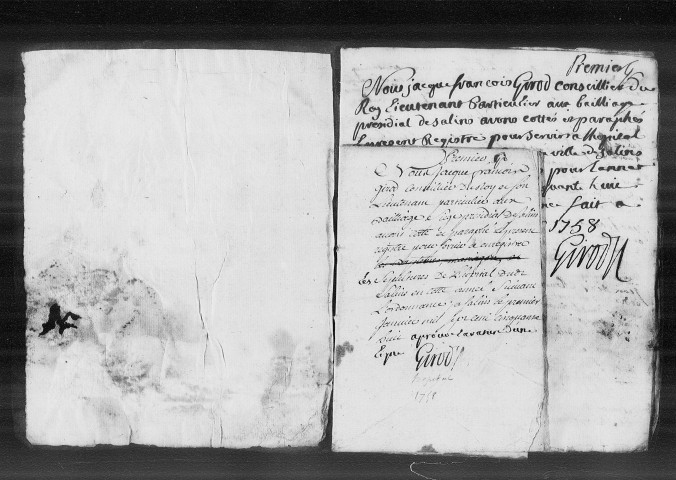 Premier
Nous jacque francois Girod conseillier du
Roy Lieutenant Particulier aux bailliage
presidial de salins avons cottés et paraphés
le present Registre pour servir a
ville de salins
pour lannée
fait a
1758
Girod
Premier
Nous Jacque francois
Girod Conseillier du Roy et son
Lieutenant particulier aux
Bailliage & siege presidial de Salins
avons cotté et paraphé le present
registre pour servir a
les Sepultures de l'hopital de
Salins en cette année
L'ordonnance a salins le premier
Janvier mil sept cent cinquante
huit aprouvé la rature d'une
Ligne Girod
hopital
1758